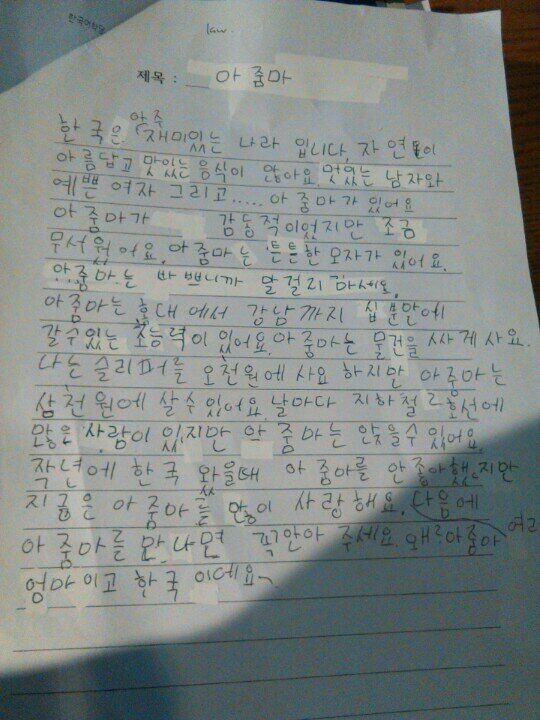 한국어학당
law.
제목 : 아 줌마
아주
한국은 재미있는 나라 입니다. 자연이
아름답고 맛있는 음식이 많아요. 멋있는 남자와
예쁜 여자 그리고..... 아 줌마가 있어요
아 줌마가 감동적이었지만 조금
무서웠어요. 아 줌마는 튼튼한 모자가 있어요.
아줌마는 바쁘니까 말걸리 마세요.
아줌마는 홍대에서 강남까지 십분만에
갈수있는 초능력이 있어요. 아 줌마는 물건을 싸게 사요.
나는 슬리퍼를 오천원에 사요 하지만 아줌마는
삼천원에 살수있어요. 날마다 지하철 2호선에
많은 사람이 있지만 아 줌마는 앉을수 있어요.
작년에 한국 왔을때 아 줌마를 안좋아했지만
지금은 아 줌마를 많이 사랑해요. 다음에
아 줌마를 만나면 꼭 안아 주세요. 아줌마
엄마이고 한국 이에요